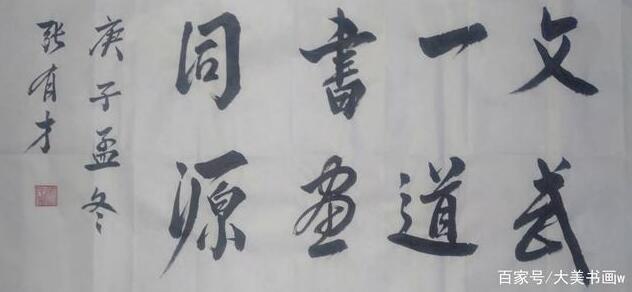 文武
一道
書画
同源
庚子孟冬
张有才
百家号/大美书画jw